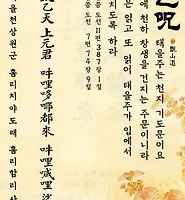 呪
태을주는 천지 기도문이요
에 천하 창생을 건지는 주문이니라
은 읽고 또 읽어 태을주가 입에서
치도록 하라
도전 11편 387장 1절
도전 7편 74장 9절
乙天上元君 吽哩哆㖿都來 吽哩喊哩娑
을천상원군 훔리치야도래 훔리함리사